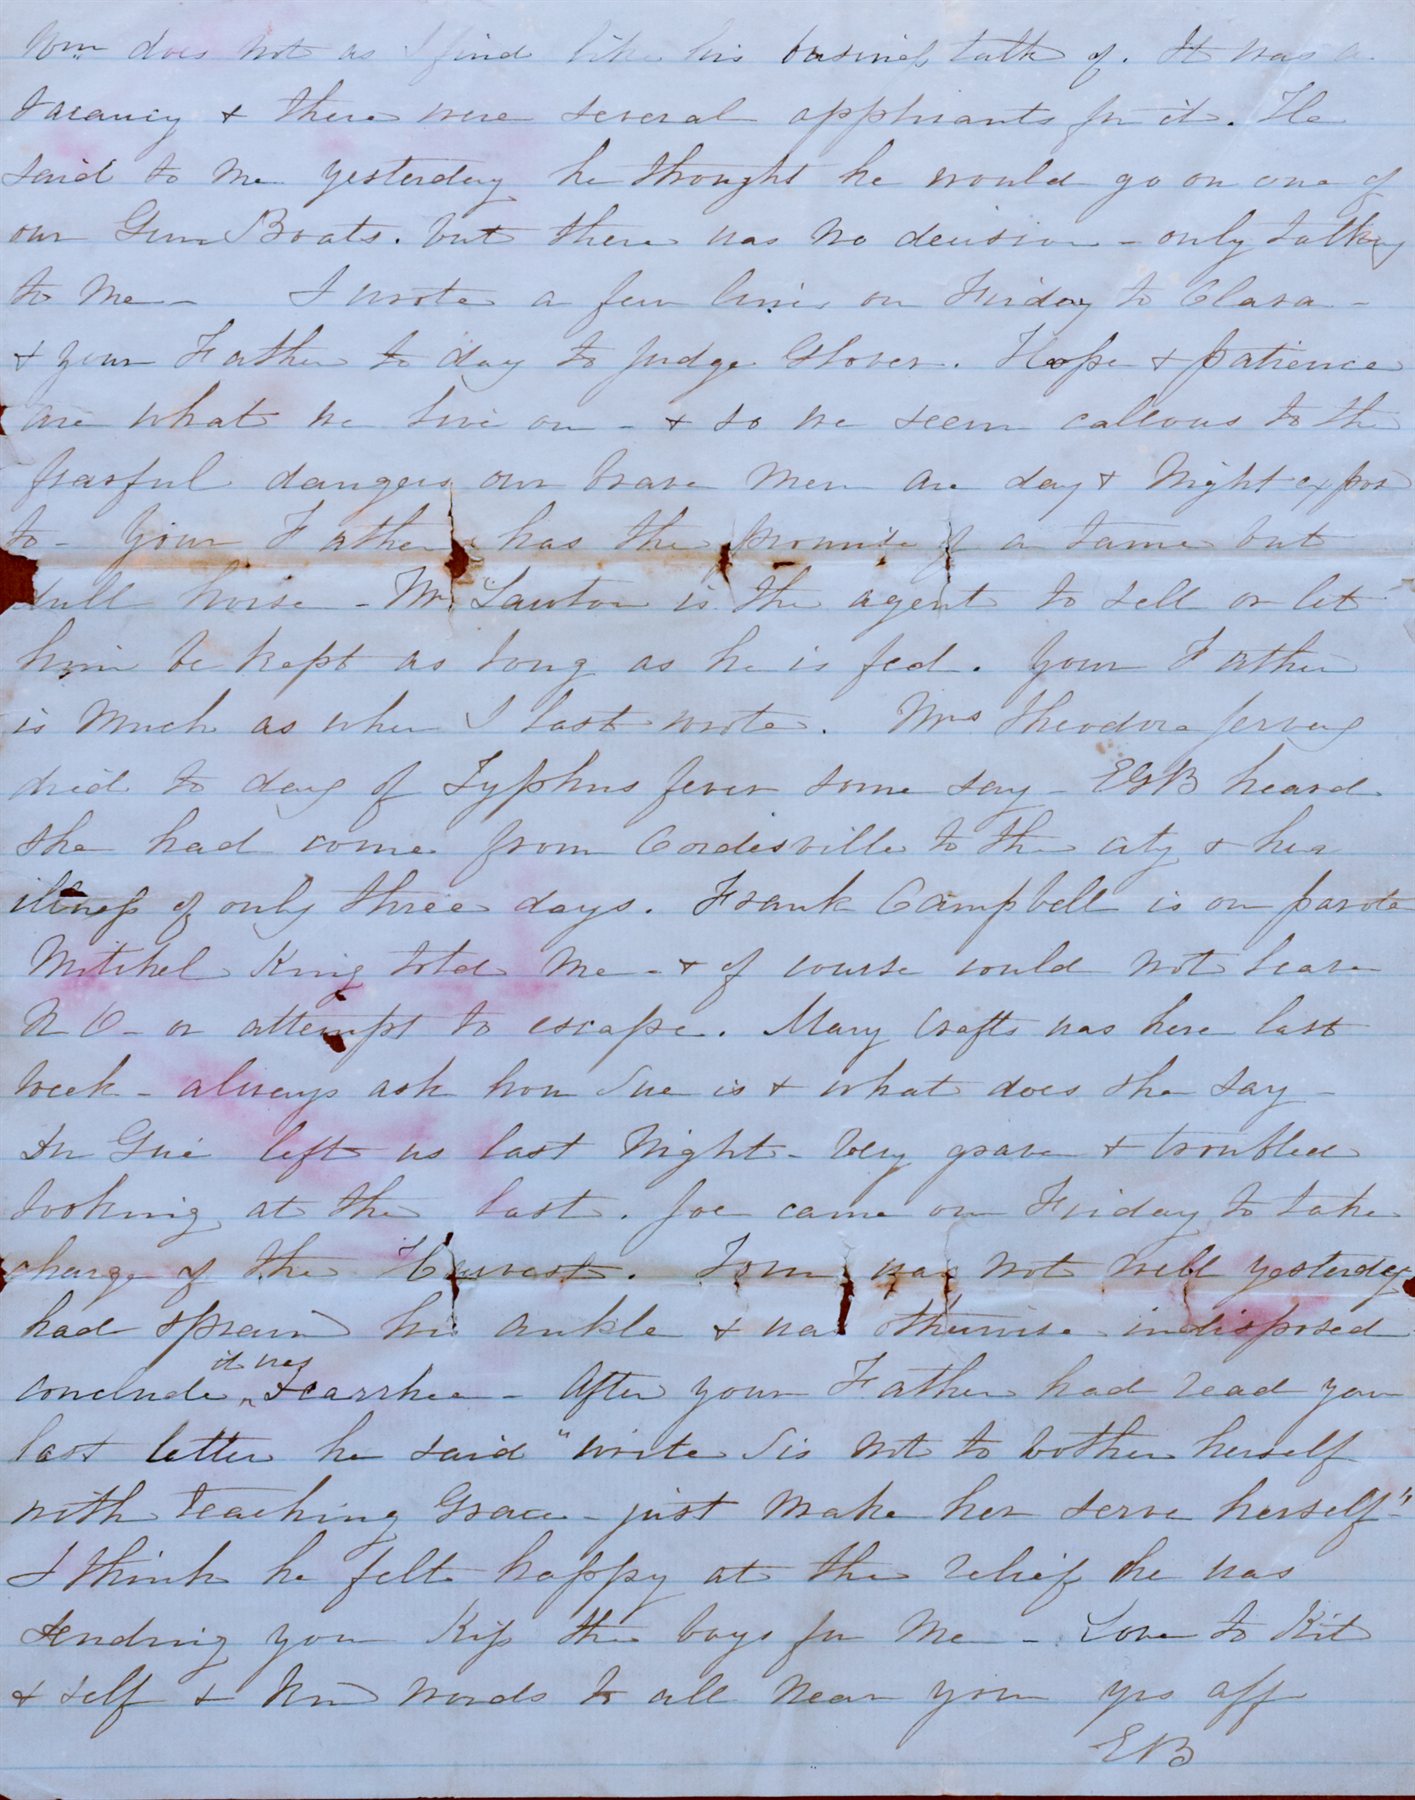 Wm does not as I find like his business talk of. It was a
vacancy & there were several applicants for it. He
said to me yesterday he thought he would go on one of
our Gun Boats. but there was no decision - only talking
to me - I wrote a few lines on Friday to Clara -
& your Father to day to Judge Glover. Hope & patience
are what we live on - & so we seem callous to the
fearful dangers our brave men are day & night expos
to - Your Father has the promise of a tame but
dull horse - Mr Lawton is the agent to sell or let
him be kept as long as he is fed. Your Father
is much as when I last wrote. Mrs Theodore Jervey
died to day of Typhus fever some say - EGB heard
she had come from Cordesville to the city & her
illness of only three days. Frank Campbell is on parole
Mitchel King told me - & of course could not leave
N O - or attempt to escape. Mary Crafts was here last
week - always ask how Sue is & what does she say -
Dr Gué left us last night - very grave & troubled
looking at the last. Joe came on Friday to take
charge of the Harvest. Tom was not well yesterday
had sprain his ankle & was otherwise indisposed
conclude it was Diarrhea - After your Father had read your
last letter he said "write Sis not to bother herself
with teaching Grace - just make her serve herself -"
I think he felt happy at the relief he was
sending you Kiss the boys for me - Love to Kit
& self & kind words to all near you yrs aff
EB